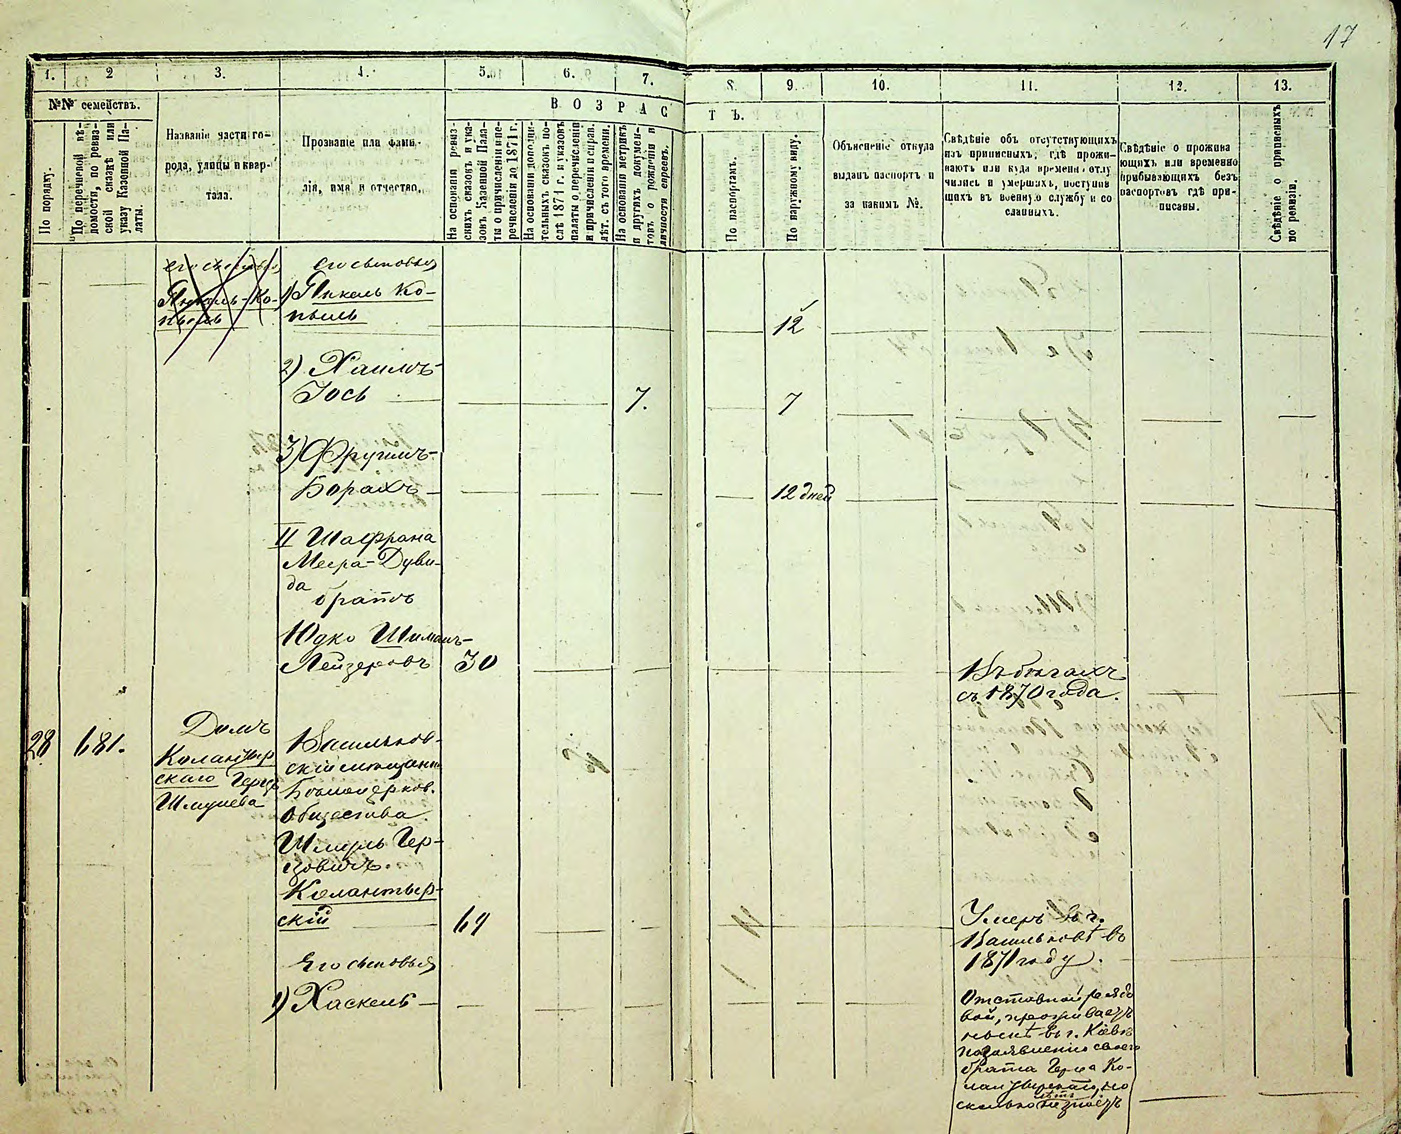 17
1.
2
3.
4.
5.
6.
7.
8.
9.
10.
11.
12.
13.
№№ семействъ.
По порядку.
По перечневой вѣ-
домости, по ревиз-
ской сказкѣ или
указу Казенной Па-
латы.
Названіе части го-
рода, улицы и квар-
тала.
Прозваніе или фами-
лія, имя и отчество.
ВОЗРАС
ТЪ.
На основаніи ревиз-
скихъ сказокъ и ука-
зовъ Казенной Пала-
ты о причисленіи и пе-
речисленіи до 1871 г.
На основаніи дополни-
тельныхъ сказокъ по-
слѣ 1871 г. и указовъ
палаты о перечисленіи
и причисленіи и справ.
лѣт. съ того времени.
На основаніи метрикъ
и другихъ докумен-
товъ о рожденіи и
личности евреевъ.
По паспортамъ.
По наружному виду.
Объясненіе откуда
выданъ паспортъ и
за какимъ №.
Свѣдѣніе объ отсутствующихъ
изъ приписныхъ, гдѣ прожи-
ваютъ или куда временно отлу
чились и умершихъ, поступив
шихъ въ военную службу и со
сланныхъ.
Свѣдѣніе о прожива
ющихъ или временно
прибывающихъ безъ
паспортовъ гдѣ при-
писаны.
Свѣдѣніе о приписныхъ
по ревизіи.
его сыновья
Янкель-Ко-
пель
его сыновья
1) Янкель Ко-
пыль
12
2) Хаимъ-
Іось
7.
7
3) Фруимъ-
Борахъ
12 дней
II Шафрана
Меера-Дуви-
да
братъ
Юдко Шимонъ-
Лейзеровъ
30
Въ бѣгахъ
съ 1870 года.
28
681.
Домъ
Колантыр
скаго Герца
Шмулева
Васильков-
скій мѣщанинъ
Бѣлоцерков.
общества.
Шмуль Гер-
цовичъ.
Колантыр-
скій
Умеръ въ г.
Васильковѣ въ
1871 году.
Его сыновья
1) Хаскель
Отставной рядо
вой, проживаетъ
въ г. Кіевѣ
по заявленію своего
брата Герца Ко-
сколько лѣтъ не знаетъ